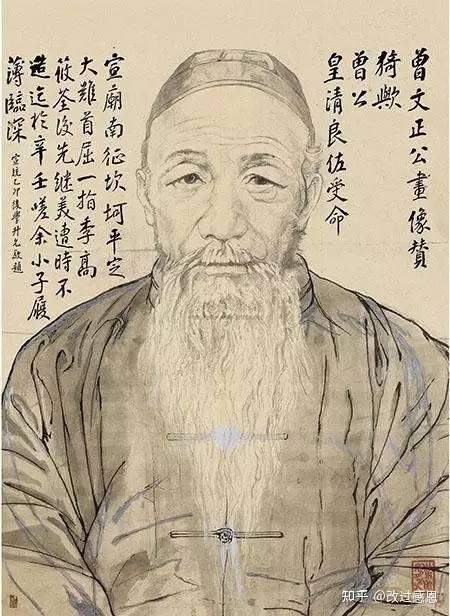 曾文正公畫像贊
猗歟
曾公
皇清良佐受命
宣廟南征坎坷平定
大難首屈一指季高
筱荃後先繼美遭時不
造迄於辛壬嗟余小子履
薄臨深
宣統乙卯後學升允敬題
知乎 @改过感恩